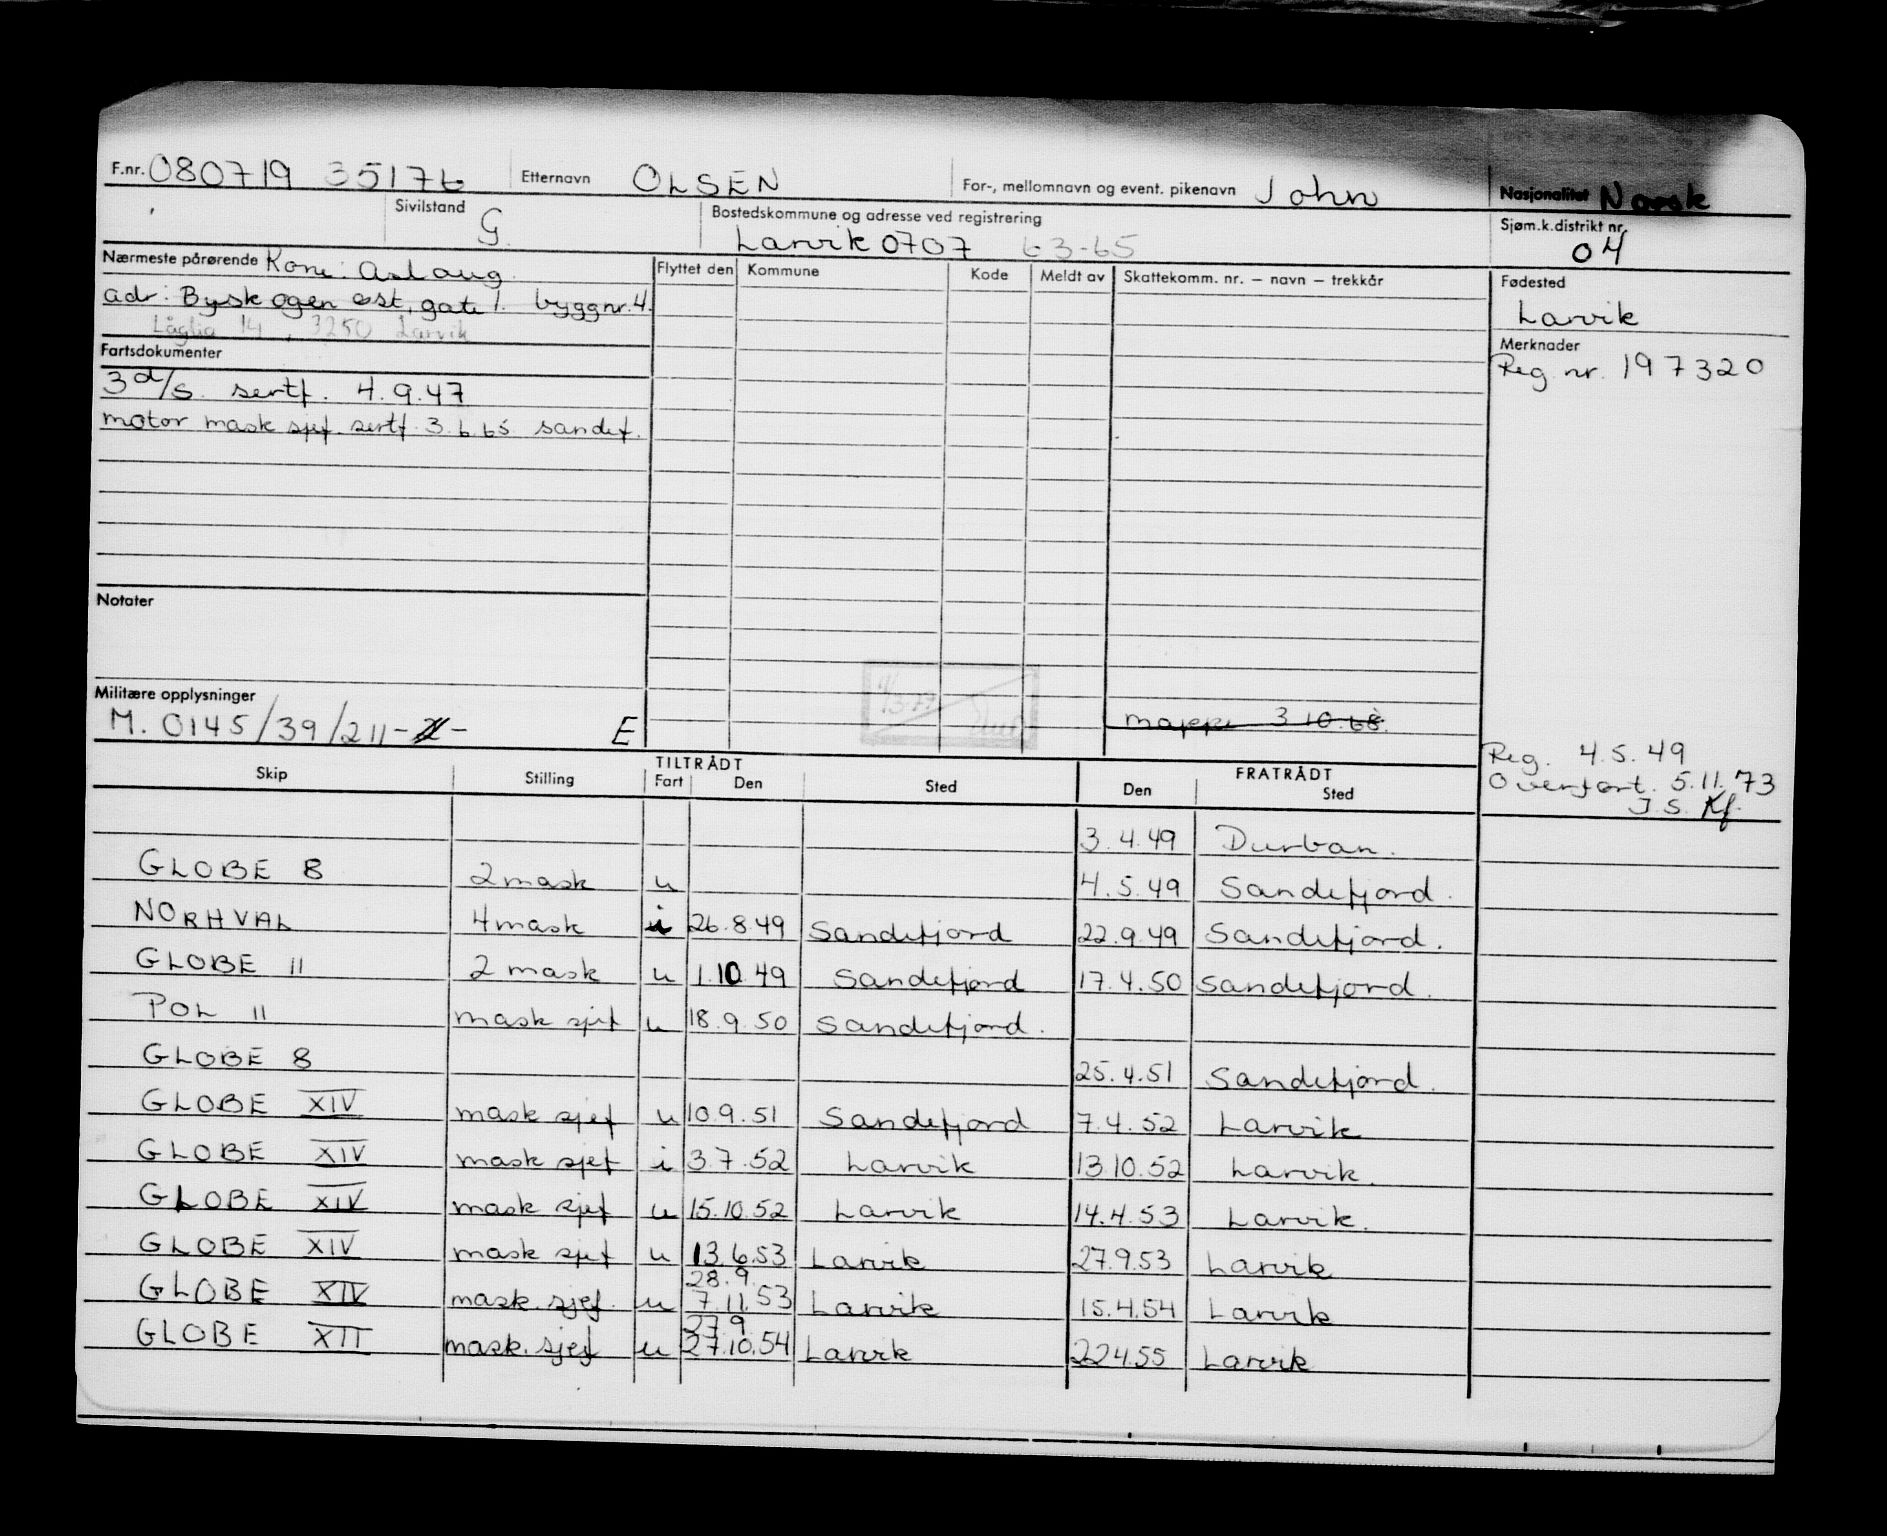 F.nr. 080719 35176 Etternavn OLSEN For-, mellomnavn og event. pikenavn John Nasjonalitet Norsk
Sivilstand G. Bostedskommune og adresse ved registrering Larvik 0707 63-65 Sjøm.k.distrikt nr. 04
Nærmeste pårørende Kone: Aslaug. Flyttet den Kommune Kode Meldt av Skattekomm. nr. – navn – trekkår Fødested
adr: Byskogen øst, gate 1. byggnr. 4. Larvik
Låglia 14, 3250 Larvik Merknader
Fartsdokumenter Reg. nr. 197320
3 d/s. sertf. 4.9.47
motor mask sjef. sertf. 3.6.65 sandef.
Notater
Militære opplysninger
M. 0145/39/211- - E mappe 3.10.68.
Reg. 4.5.49
Overført. 5.11.73
J.S. Kf.
Skip Stilling TILTRÅDT Fart Den Sted FRATRÅDT Den Sted
3.4.49 Durban.
GLOBE 8 2 mask u 4.5.49 Sandefjord.
NORHVAL 4 mask i 26.8.49 Sandefjord 22.9.49 Sandefjord.
GLOBE 11 2 mask u 1.10.49 Sandefjord 17.4.50 Sandefjord.
POL 11 mask sjef u 18.9.50 Sandefjord.
GLOBE 8 25.4.51 Sandefjord.
GLOBE XIV mask sjef u 10.9.51 Sandefjord 7.4.52 Larvik
GLOBE XIV mask sjef i 3.7.52 Larvik 13.10.52 Larvik.
GLOBE XIV mask sjef u 15.10.52 Larvik 14.4.53 Larvik.
GLOBE XIV mask sjef u 13.6.53 Larvik 27.9.53 Larvik
28.9.
GLOBE XIV mask. sjef. u 7.11.53 Larvik 15.4.54 Larvik
27.9
GLOBE XII mask. sjef u 27.10.54 Larvik 22.4.55 Larvik